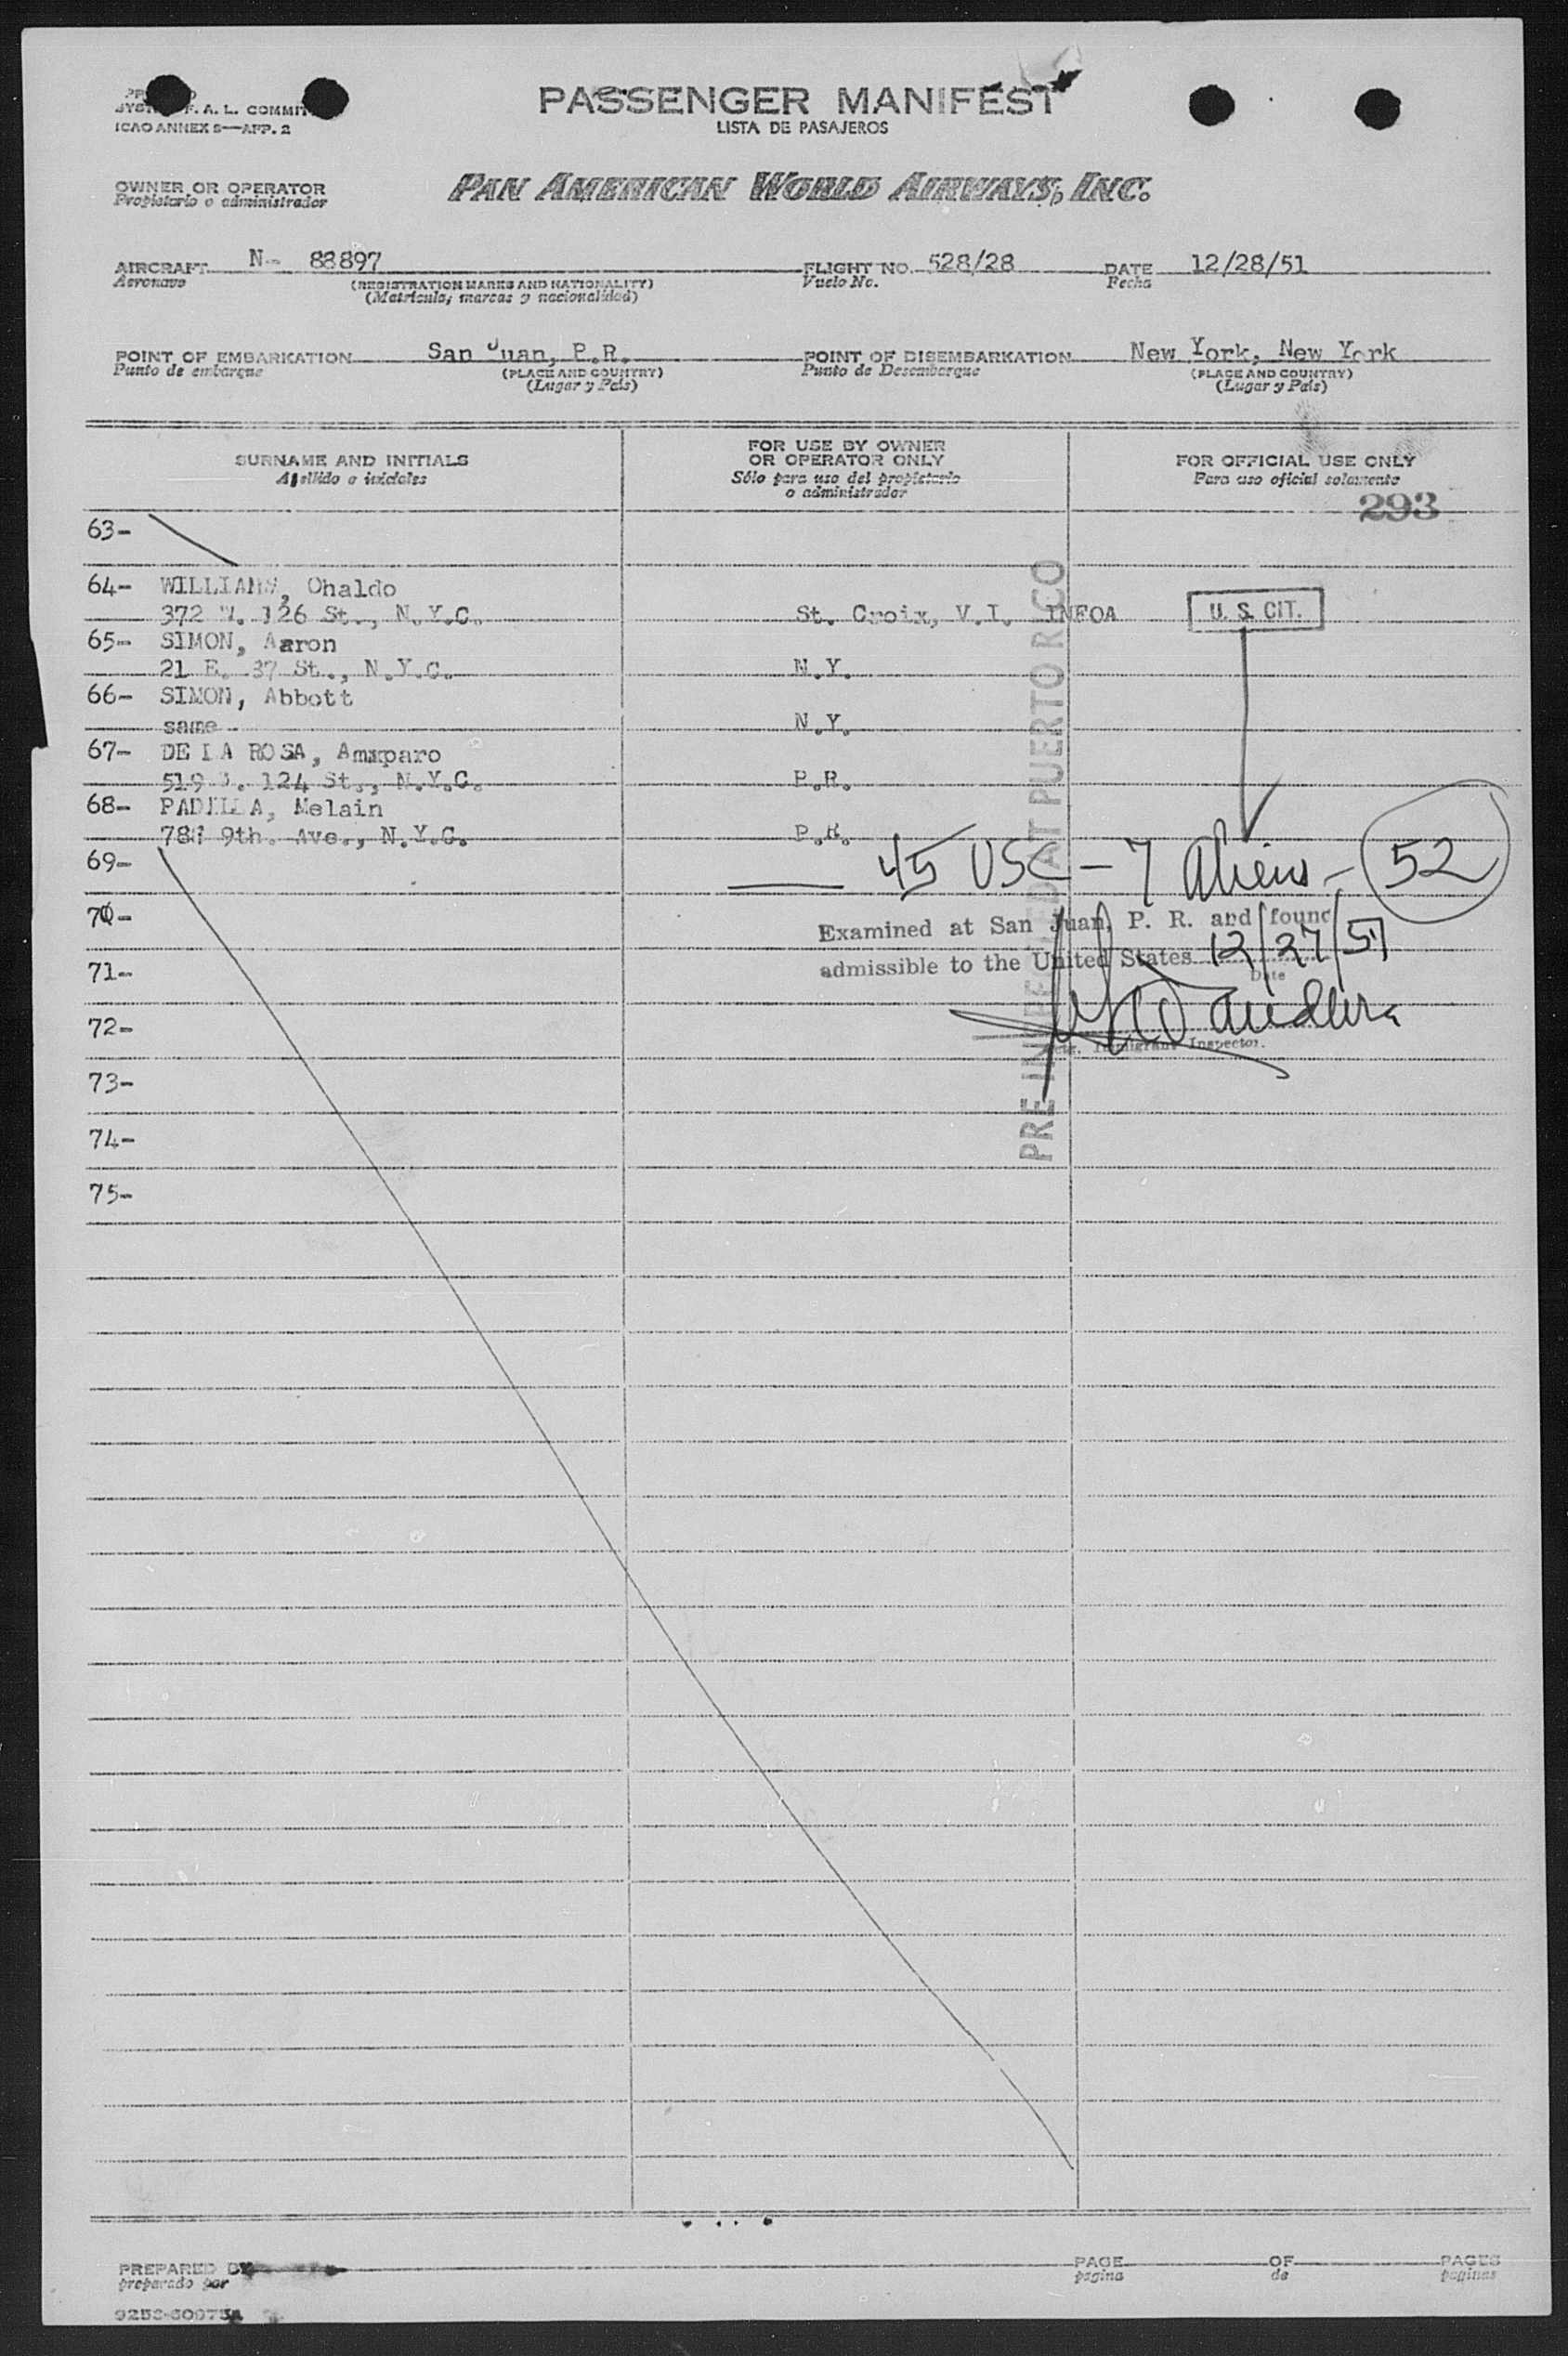 F. A. L. COMMIT
ICAO ANNEX 9—APP. 2
PASSENGER MANIFEST
LISTA DE PASAJEROS
OWNER OR OPERATOR
Propietario o administrador
PAN AMERICAN WORLD AIRWAYS, INC.
AIRCRAFT N- 88897 FLIGHT NO. 528/28 DATE 12/28/51
Aeronave (REGISTRATION MARKS AND NATIONALITY) Vuelo No. Fecha
(Matrícula, marcas y nacionalidad)
POINT OF EMBARKATION San Juan, P.R. POINT OF DISEMBARKATION New York, New York
Punto de embarque (PLACE AND COUNTRY) Punto de Desembarque (PLACE AND COUNTRY)
(Lugar y País) (Lugar y País)
SURNAME AND INITIALS FOR USE BY OWNER OR OPERATOR ONLY FOR OFFICIAL USE ONLY
Apellido e iniciales Sólo para uso del propietario o administrador Para uso oficial solamente
293
63-
64- WILLIAMS, Ohaldo
372 W. 126 St., N.Y.C. St. Croix, V.I. INFOA U. S. CIT.
65- SIMON, Aaron
21 E. 37 St., N.Y.C. N.Y.
66- SIMON, Abbott
same N.Y.
67- DE LA ROSA, Amxparo
519 W. 124 St., N.Y.C. P.R.
68- PADILLA, Melain
9th. Ave., N.Y.C. P.R.
69- 45 USC - 7 Aliens - 52
70- Examined at San Juan, P. R. and found
71- admissible to the United States 12/27/51
Date
72-
Immigrant Inspector.
73-
74-
75-
PRE INSPECTED AT PUERTO RICO
PREPARED BY PAGE OF PAGES
preparado por página de páginas